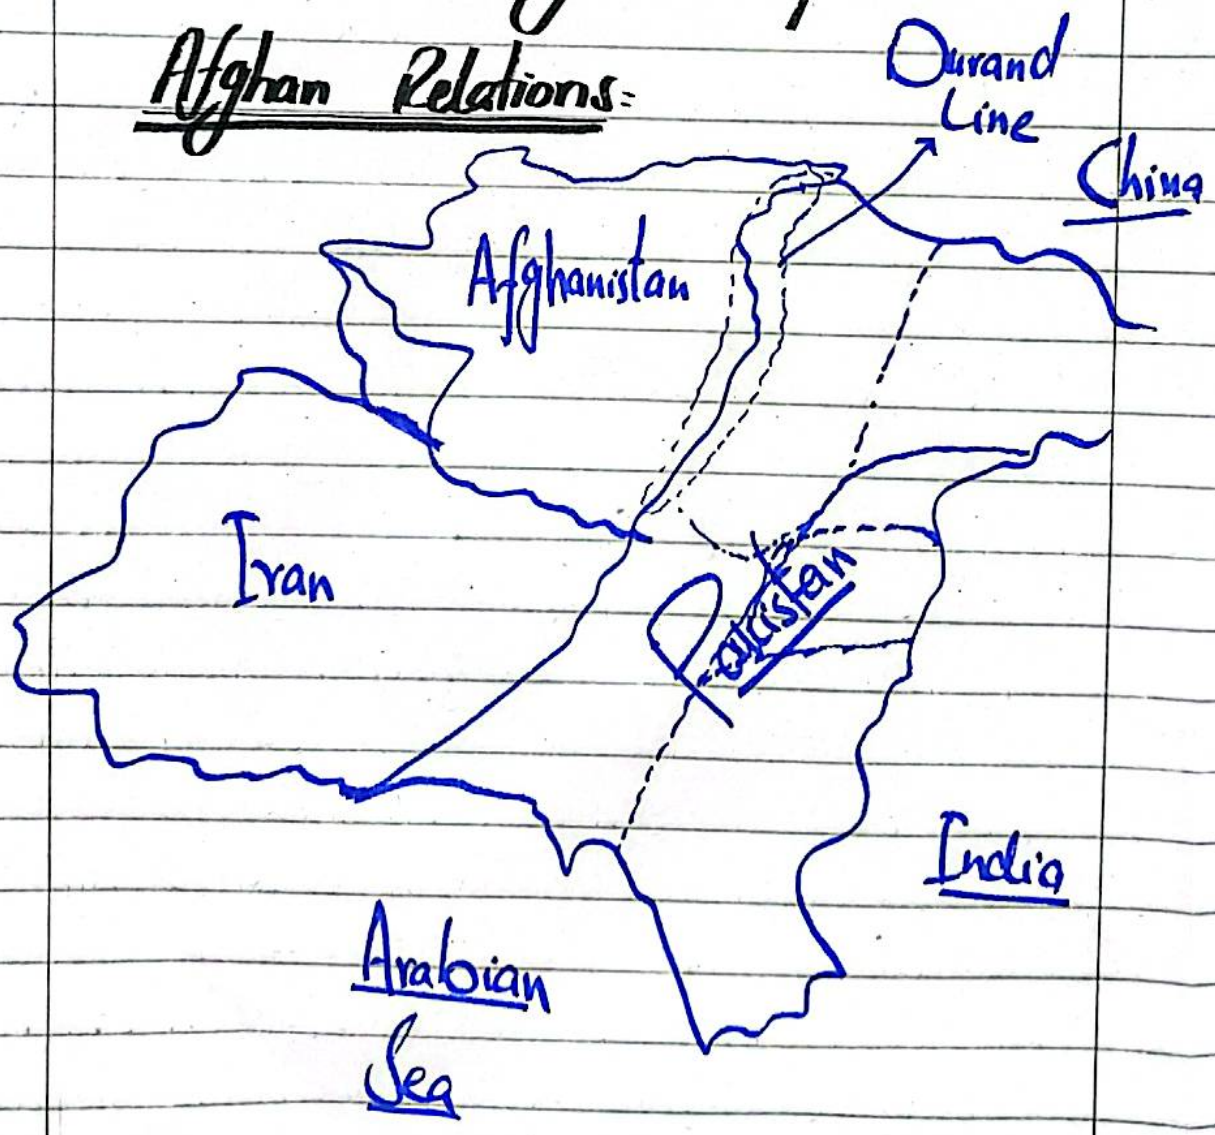 Afghan Relations:
Durand
Line
China
Afghanistan
Iran
Pakistan
India
Arabian
Sea